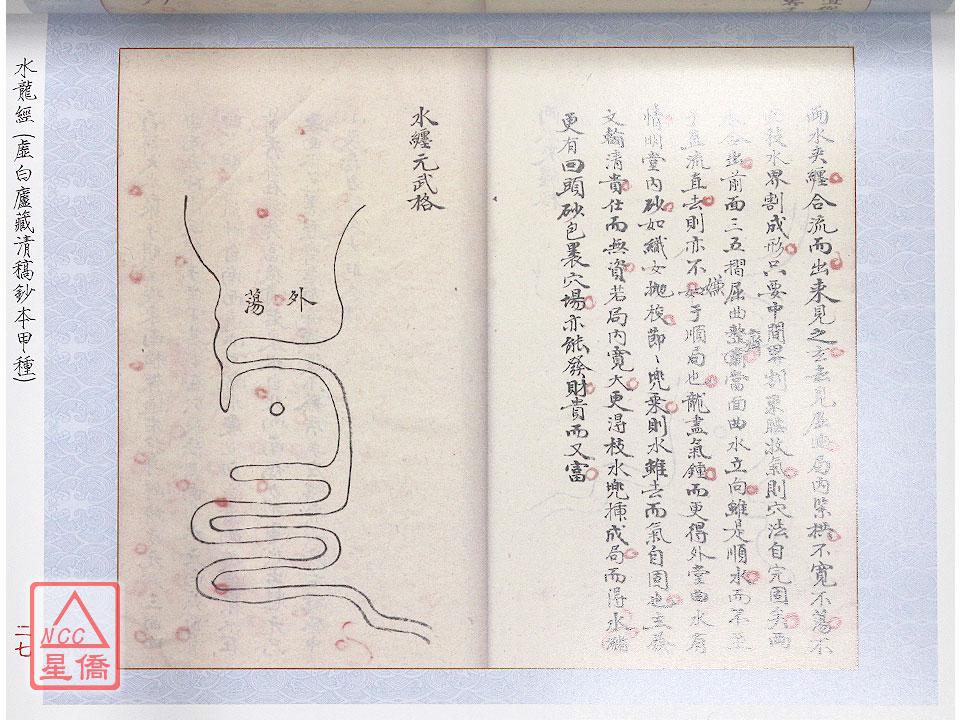 兩水夾纏合流而出來見之玄去見屈曲局內緊拱不寬不蕩不
枝水界割成形只要中間界割束腰收氣則穴法自完固矣兩
水合出前面三五摺屈曲整齊當面曲水立向雖是順水而不至
流直去則亦不嫌于順局也龍盡氣鍾而更得外堂曲水有
情明堂內砂如織女拋梭節〻兜乘則水雖去而氣自固也主發
文翰清貴仕而無資若局內寬大更得枝水兜揷成局而得水纏
更有回頭砂包裹穴場亦能發財貴而又富
水纏元武格
外蕩
水龍經(虛白廬藏清稿鈔本甲種)
二七
NCC
星僑